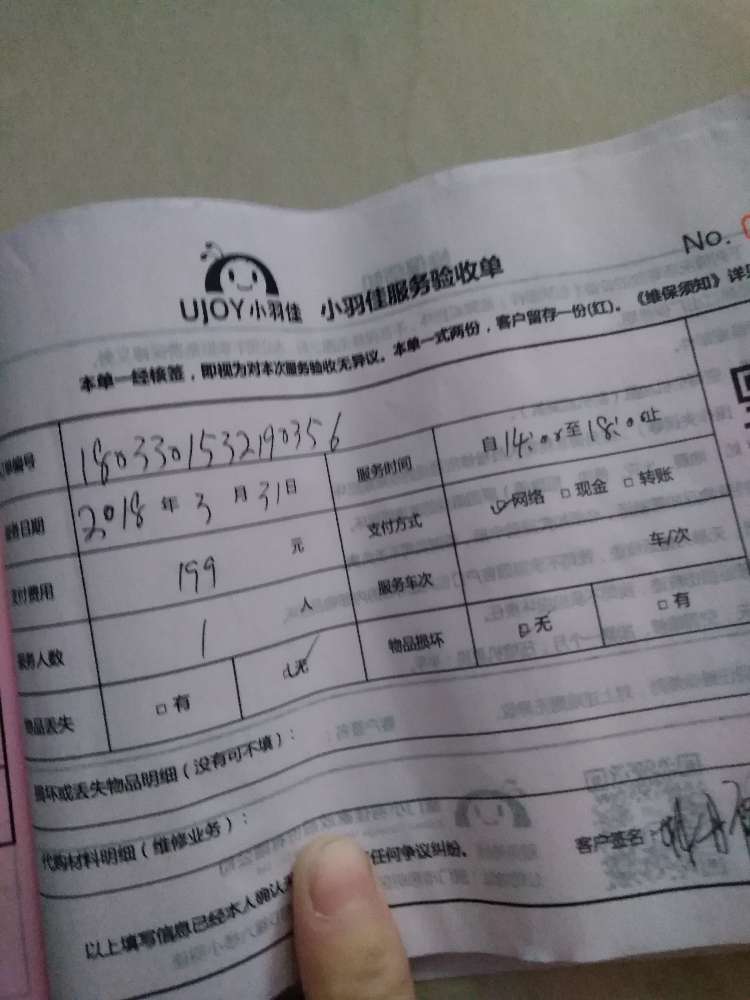 No.
UJOY小羽佳 小羽佳服务验收单
本单一经核签，即视为对本次服务验收无异议。本单一式两份，客户留存一份(红)。《维保须知》详见
单编号 1803301532190356 服务时间 自14:00至18:00止
日期 2018年3月31日 支付方式 网络 现金 转账
付费用 199元 服务车次 车/次
务人数 1人 物品损坏 无 有
物品丢失 有 无
损坏或丢失物品明细（没有可不填）：
代购材料明细（维修业务）：
以上填写信息已经本人确认 任何争议纠纷。 客户签名：